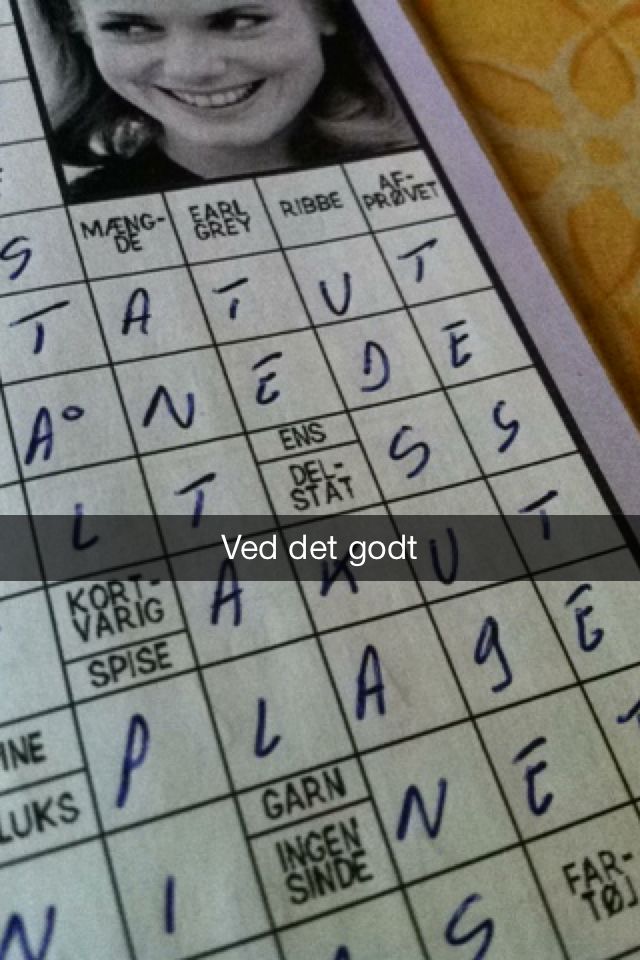 MÆNG-
DE
EARL
GREY
RIBBE
AF-
PRØVET
S
T A T U T
Å N E D E
ENS
DEL-
STAT
S S
L T
Ved det godt
KORT-
VARIG
SPISE
A K U T
P L A G E
INE
LUKS
GARN
INGEN
SINDE
N E T
N I
FAR-
TØJ
S